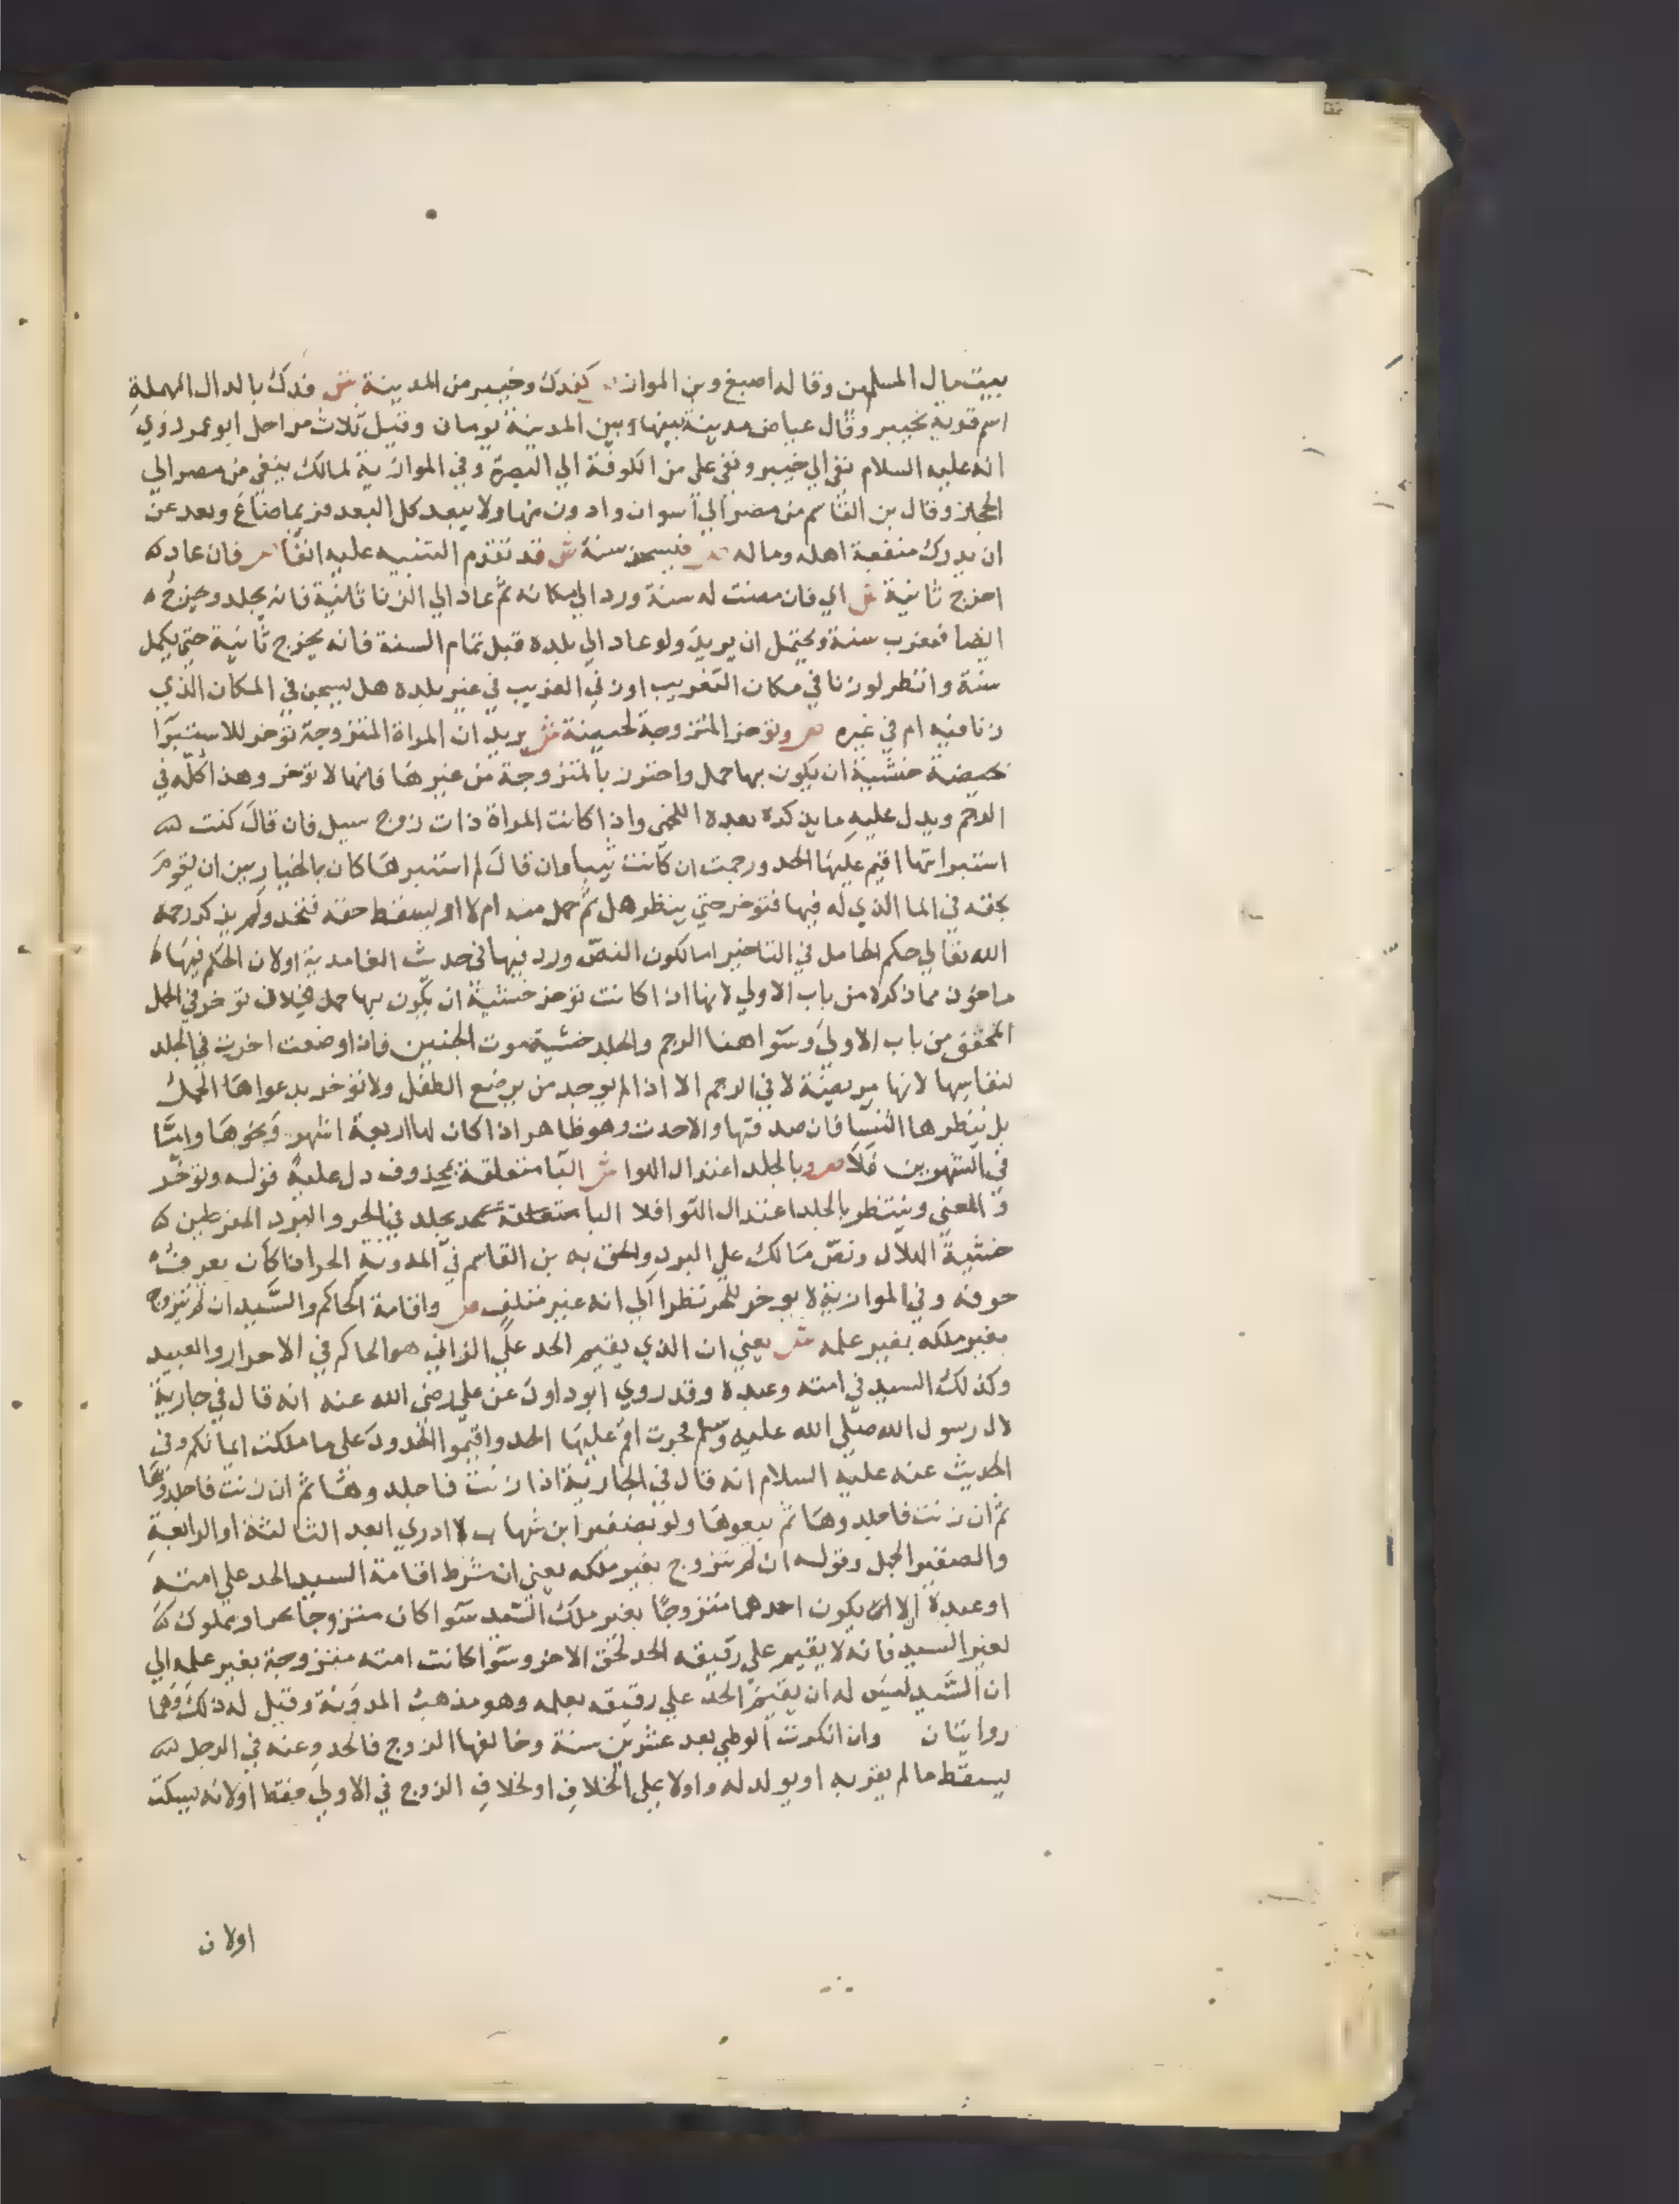 بيت مال المسلمين وقاله اصبغ وبن المواز ص كفدك وخيبر من المدينة ش فدك بالدال المهملة
اسم قرية بخيبر وقال عياض مدينة بينها وبين المدينة يومان وقيل ثلاث مراحل ابو عمر وروي
انه عليه السلام نفى الي خيبر ونفى علي من الكوفة الي البصرة وفي الموازية لمالك ينفي من مصر الي
الحجاز وقال بن القاسم من مصر الي أسوان وادون منها ولا يبعد كل البعد فربما ضاع وبعد عن
ان يدرك منفعة اهله وماله ص فيسجن سنة ش قد تقدم التنبيه عليه انفا ص فان عاد
اخرج ثانية ش اي فان مضت له سنة ورد الي مكانه ثم عاد الي الزنا ثانية فانه يجلد ويخرج
ايضا فيغرب سنة ويحتمل ان يريد ولو عاد الي بلده قبل تمام السنة فانه يخرج ثانية حتي يكمل
سنة وانظر لو زنا في مكان التغريب او زني الغريب في غير بلده هل يسجن في المكان الذي
زنا فيه ام في غيره ص وتوخر المتزوجة لحيضة ش يريد ان المراة المتزوجة توخر للاستبرا
بحيضة خشية ان يكون بها حمل واحترز بالمتزوجة من غيرها فانها لا توخر وهذا كله في
الرجم ويدل عليه ما يذكره بعده اللخمي واذا كانت المراة ذات زوج سيل فان قال كنت
استبراتها اقيم عليها الحد ورجمت ان كانت ثيبا وان قال لم استبرها كان بالخيار بين ان يقوم
بحقه في الما الذي له فيها فتوخر حتي ينظر هل ثم حمل منه ام لا او يسقط حقه فتحد ولم يذكر رحمه
الله تعالي حكم الحامل في التاخير اما لكون النص ورد فيها في حديث الغامدية اولان الحكم فيها
ماخوذ مما ذكره من باب الاولي لانها اذا كانت توخر خشية ان يكون بها حمل فلان توخر في الحمل
المحقق من باب الاولي وسوا هنا الرجم والجلد خشية موت الجنين فاذا وضعت اخرت في الجلد
لنفاسها لانها مريضة لا في الرجم الا اذا لم يوجد من يرضع الطفل ولا توخر بدعواها الحمل
بل ينظرها النسا فان صدقتها والاحدت وهو ظاهر اذا كان لها اربعة اشهر ونحوها واما
في الشهرين فلا ص وبالجلد اعتدال الهوا ش البا متعلقة بمحذوف دل عليه قوله وتوخر
والمعني وينتظر بالجلد اعتدال الهوا فلا يجلد في الحر والبرد المفرطين
خشية الهلاك ونص مالك علي البرد والحق به بن القاسم في المدونة الحر اذا كان يعرف
خوفه وفي الموازية لا يوخر للحر نظرا الي انه غير متلف ص واقامة الحاكم والسيد ان لم يتزوج
بغير ملكه بغير علمه ش يعني ان الذي يقيم الحد علي الزاني هو الحاكم في الاحرار والعبيد
وكذلك السيد في امته وعبده وقد روي ابو داود عن علي رضى الله عنه انه قال في جارية
لال رسول الله صلي الله عليه وسلم فجرت اقم عليها الحد واقيموا الحدود على ما ملكت ايمانكم وفي
الحديث عنه عليه السلام انه قال في الجارية اذا زنت فاجلدوها ثم ان زنت فاجلدوها
ثم ان زنت فاجلدوها ثم بيعوها ولو بضفير ابن شهاب لا ادري ابعد الثالثة او الرابعة
والضفير الحبل وقوله ان لم يتزوج بغير ملكه يعني ان شرط اقامة السيد الحد علي امته
او عبده الا يكون احدهما متزوجا بغير ملك السيد سوا كان متزوجا بحر او مملوك
لغير السيد فانه لا يقيم علي رقيقه الحد لحق الاخر وسوا كانت امته متزوجة بغير علمه الي
ان السيد ليس له ان يقيم الحد علي رقيقه بعلمه وهو مذهب المدونة وقيل له ذلك وهما
روايتان وان انكرت الوطي بعد عشرين سنة وخالفها الزوج فالحد وعنه في الرجل
يسقط ما لم يقر به او يولد له واولا علي الخلاف او لخلاف الزوج في الاولي فقط اولانه يسكت
اولان